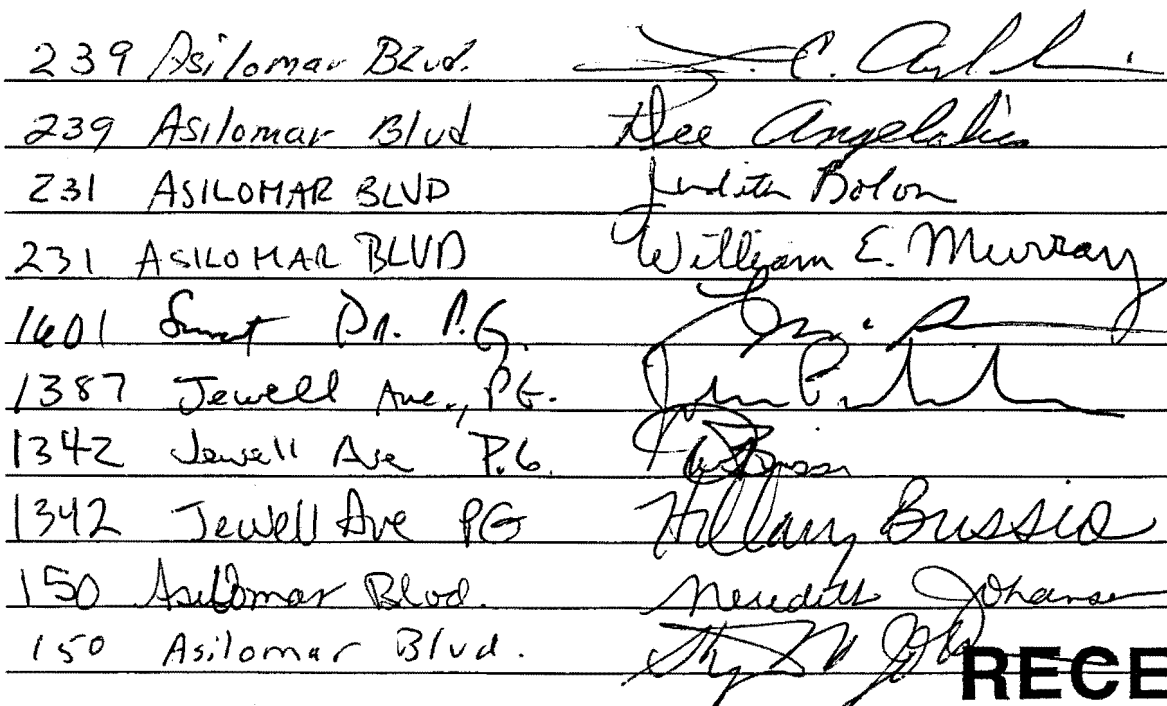 239 Asilomar Blvd. C.
239 Asilomar Blvd Dee Angelakis
231 ASILOMAR BLVD Judith Bolon
231 ASILOMAR BLVD William E. Murray
1601 Sunset Dr. P.G.
1387 Jewell Ave., P.G. John
1342 Jewell Ave P.G.
1342 Jewell Ave PG Hillary Bussio
150 Asilomar Blvd. Meredith Johansen
150 Asilomar Blvd.
RECE